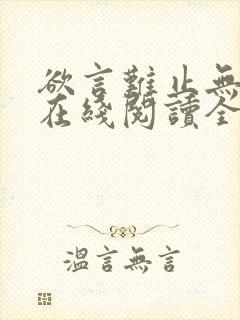 欲言難止無
在綫閱讀全
溫言無言